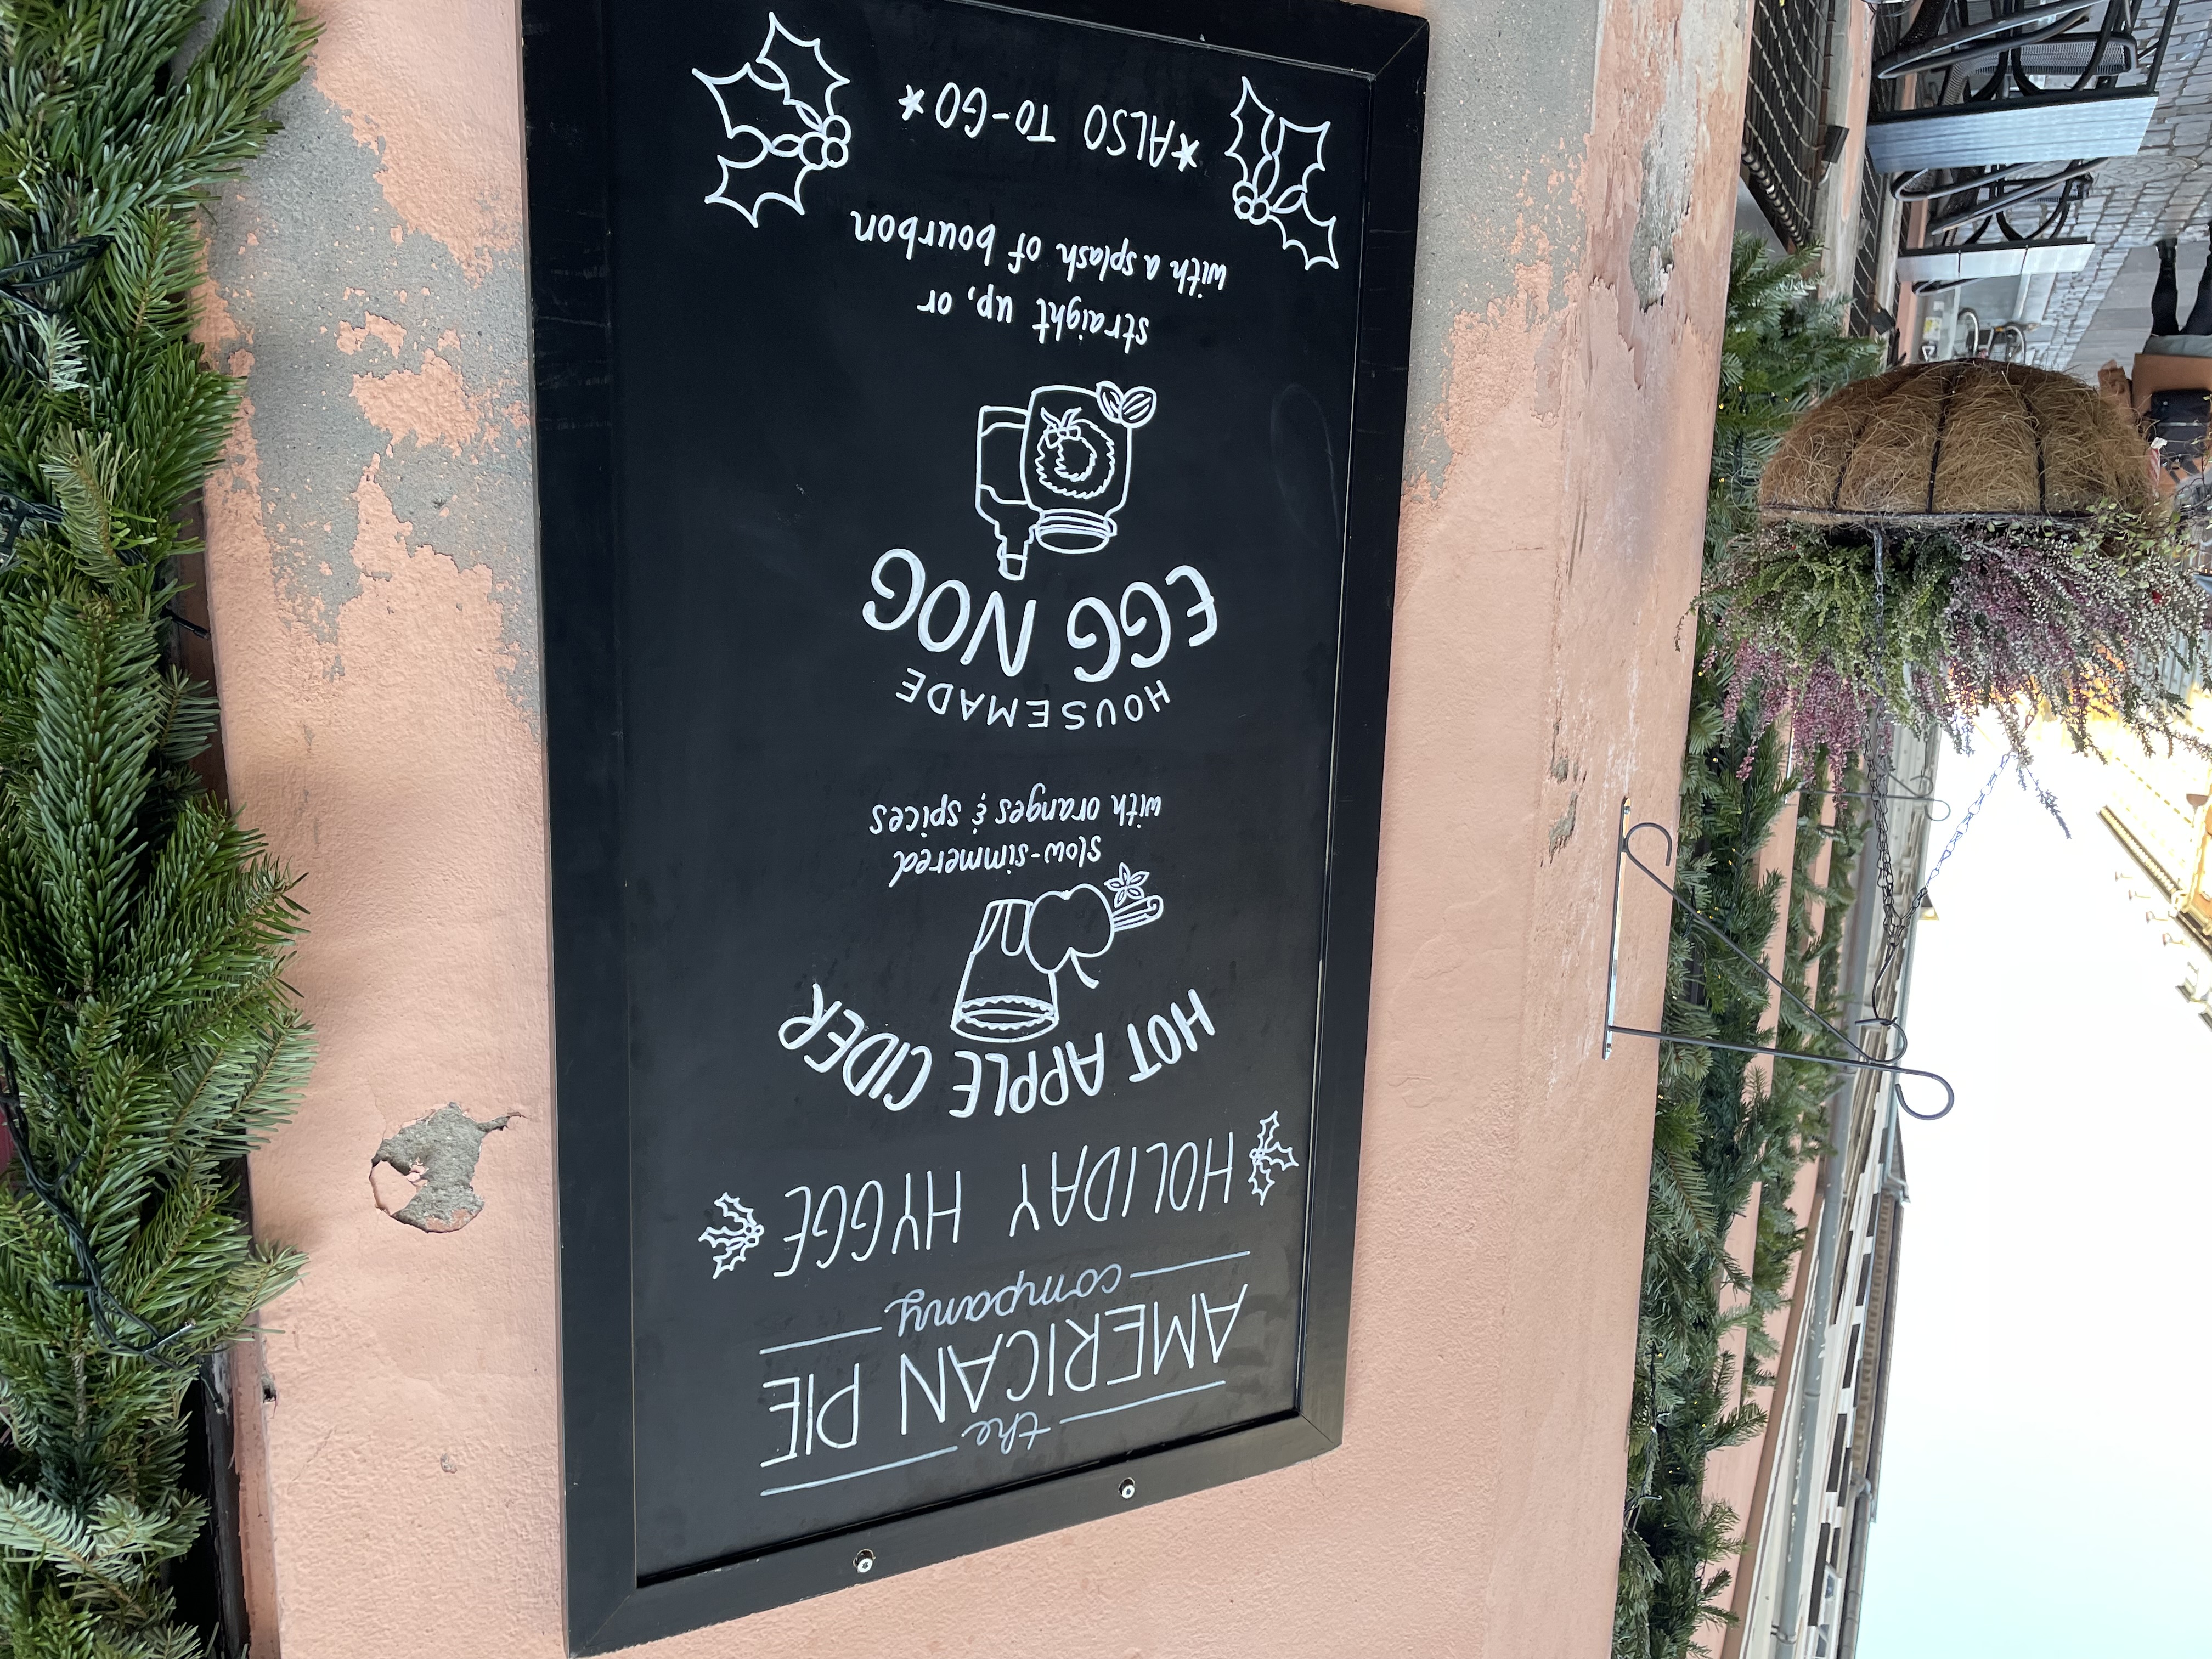 the
AMERICAN PIE
company
HOLIDAY HYGGE
HOT APPLE CIDER
slow-simmered
with oranges & spices
HOUSEMADE
EGG NOG
straight up, or
with a splash of bourbon
*ALSO TO-GO*